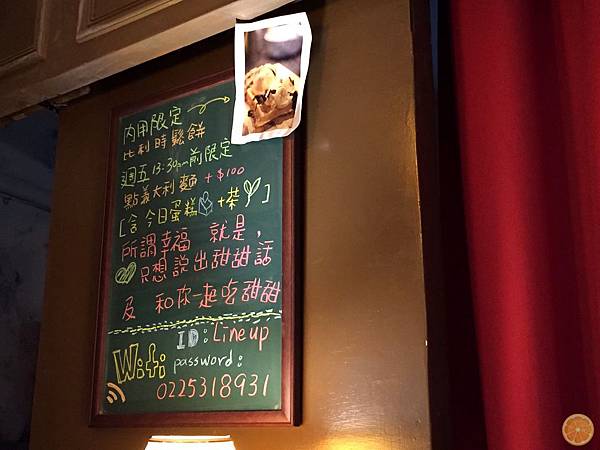 內用限定
比利時鬆餅
週五 13:30pm前限定
點義大利麵 +$100
[含 今日蛋糕 +茶]
所謂幸福 就是,
只想說出甜甜話
及 和你一起吃甜甜
ID: Line up
Wifi password:
0225318931